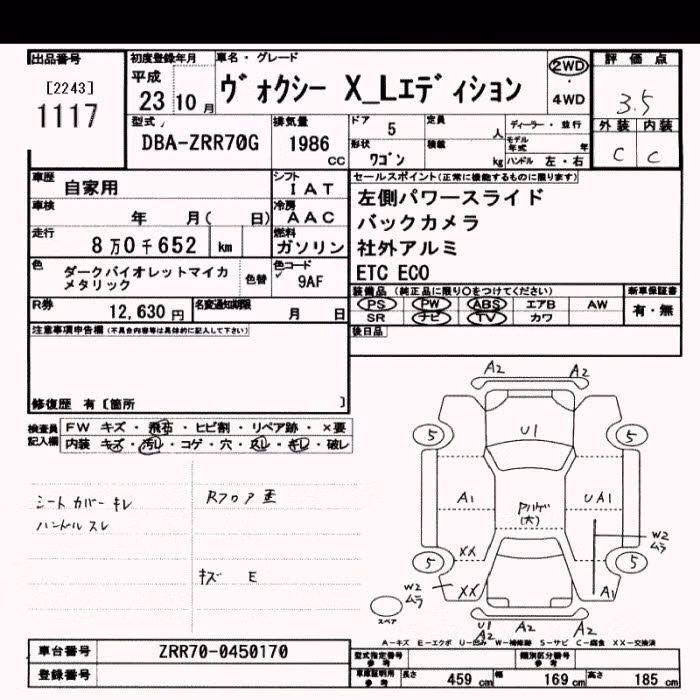 出品番号
[2243]
1117
初度登録年月
平成
23 10 月
車名・グレード
ヴォクシー X_Lエディション
2WD
4WD
評価点
3.5
外装 内装
C C
型式
DBA-ZRR70G
排気量
1986
CC
ドア 5
定員 人
形状 ワゴン
積載 kg
ディーラー・並行
モデル年式 年
ハンドル 左・右
車歴 自家用
シフト
IAT
車検 年 月( 日)
冷房
AAC
走行 8万0千652 km
燃料
ガソリン
色
ダークバイオレットマイカ
メタリック
色替
色コード
9AF
R券 12,630 円
名変通知期限 月 日
セールスポイント(正常に機能するものに限ります)
左側パワースライド
バックカメラ
社外アルミ
ETC ECO
装備品(純正品に限り○をつけてください)
新車保証書
PS PW ABS エアB AW
SR ナビ TV カワ
有・無
後日品
注意事項申告欄(不具合内容等は具体的に記入して下さい)
修復歴 有〔箇所 〕
検査員
記入欄
FW キズ・飛石・ヒビ割・リペア跡・×要
内装 キズ・汚レ・コゲ・穴・スレ・キレ・破レ
シートカバーキレ
ハンドルスレ
Rフロア歪
キズ E
A2 A2
5 5
U1
A1
Pハゲ
(大)
UA1
W2
ムラ
5 5
XX
XX
W2
ムラ
A1
スペア
U1
A2 A2
A-キズ E-エクボ U-凹み W-補修跡 S-サビ C-腐食 XX-交換済
車台番号 ZRR70-0450170
登録番号
型式指定番号
参考
類別区分番号
参考
車庫証明用
参考
長さ 459 cm 幅 169 cm 高さ 185 cm